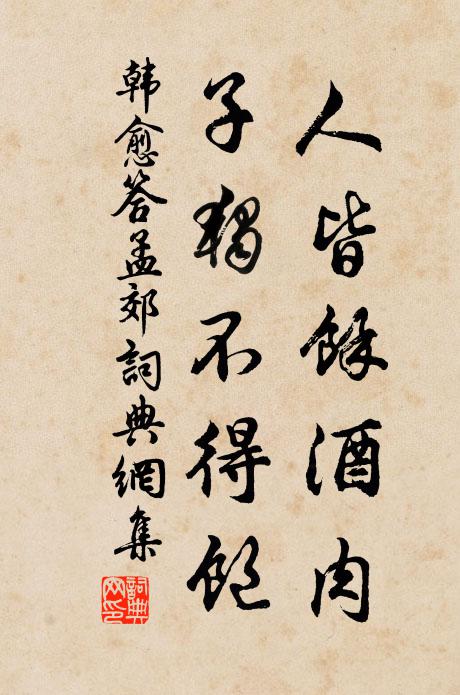 人皆餘酒肉
子獨不得飽
韩愈答孟郊詞典網集
詞典網印